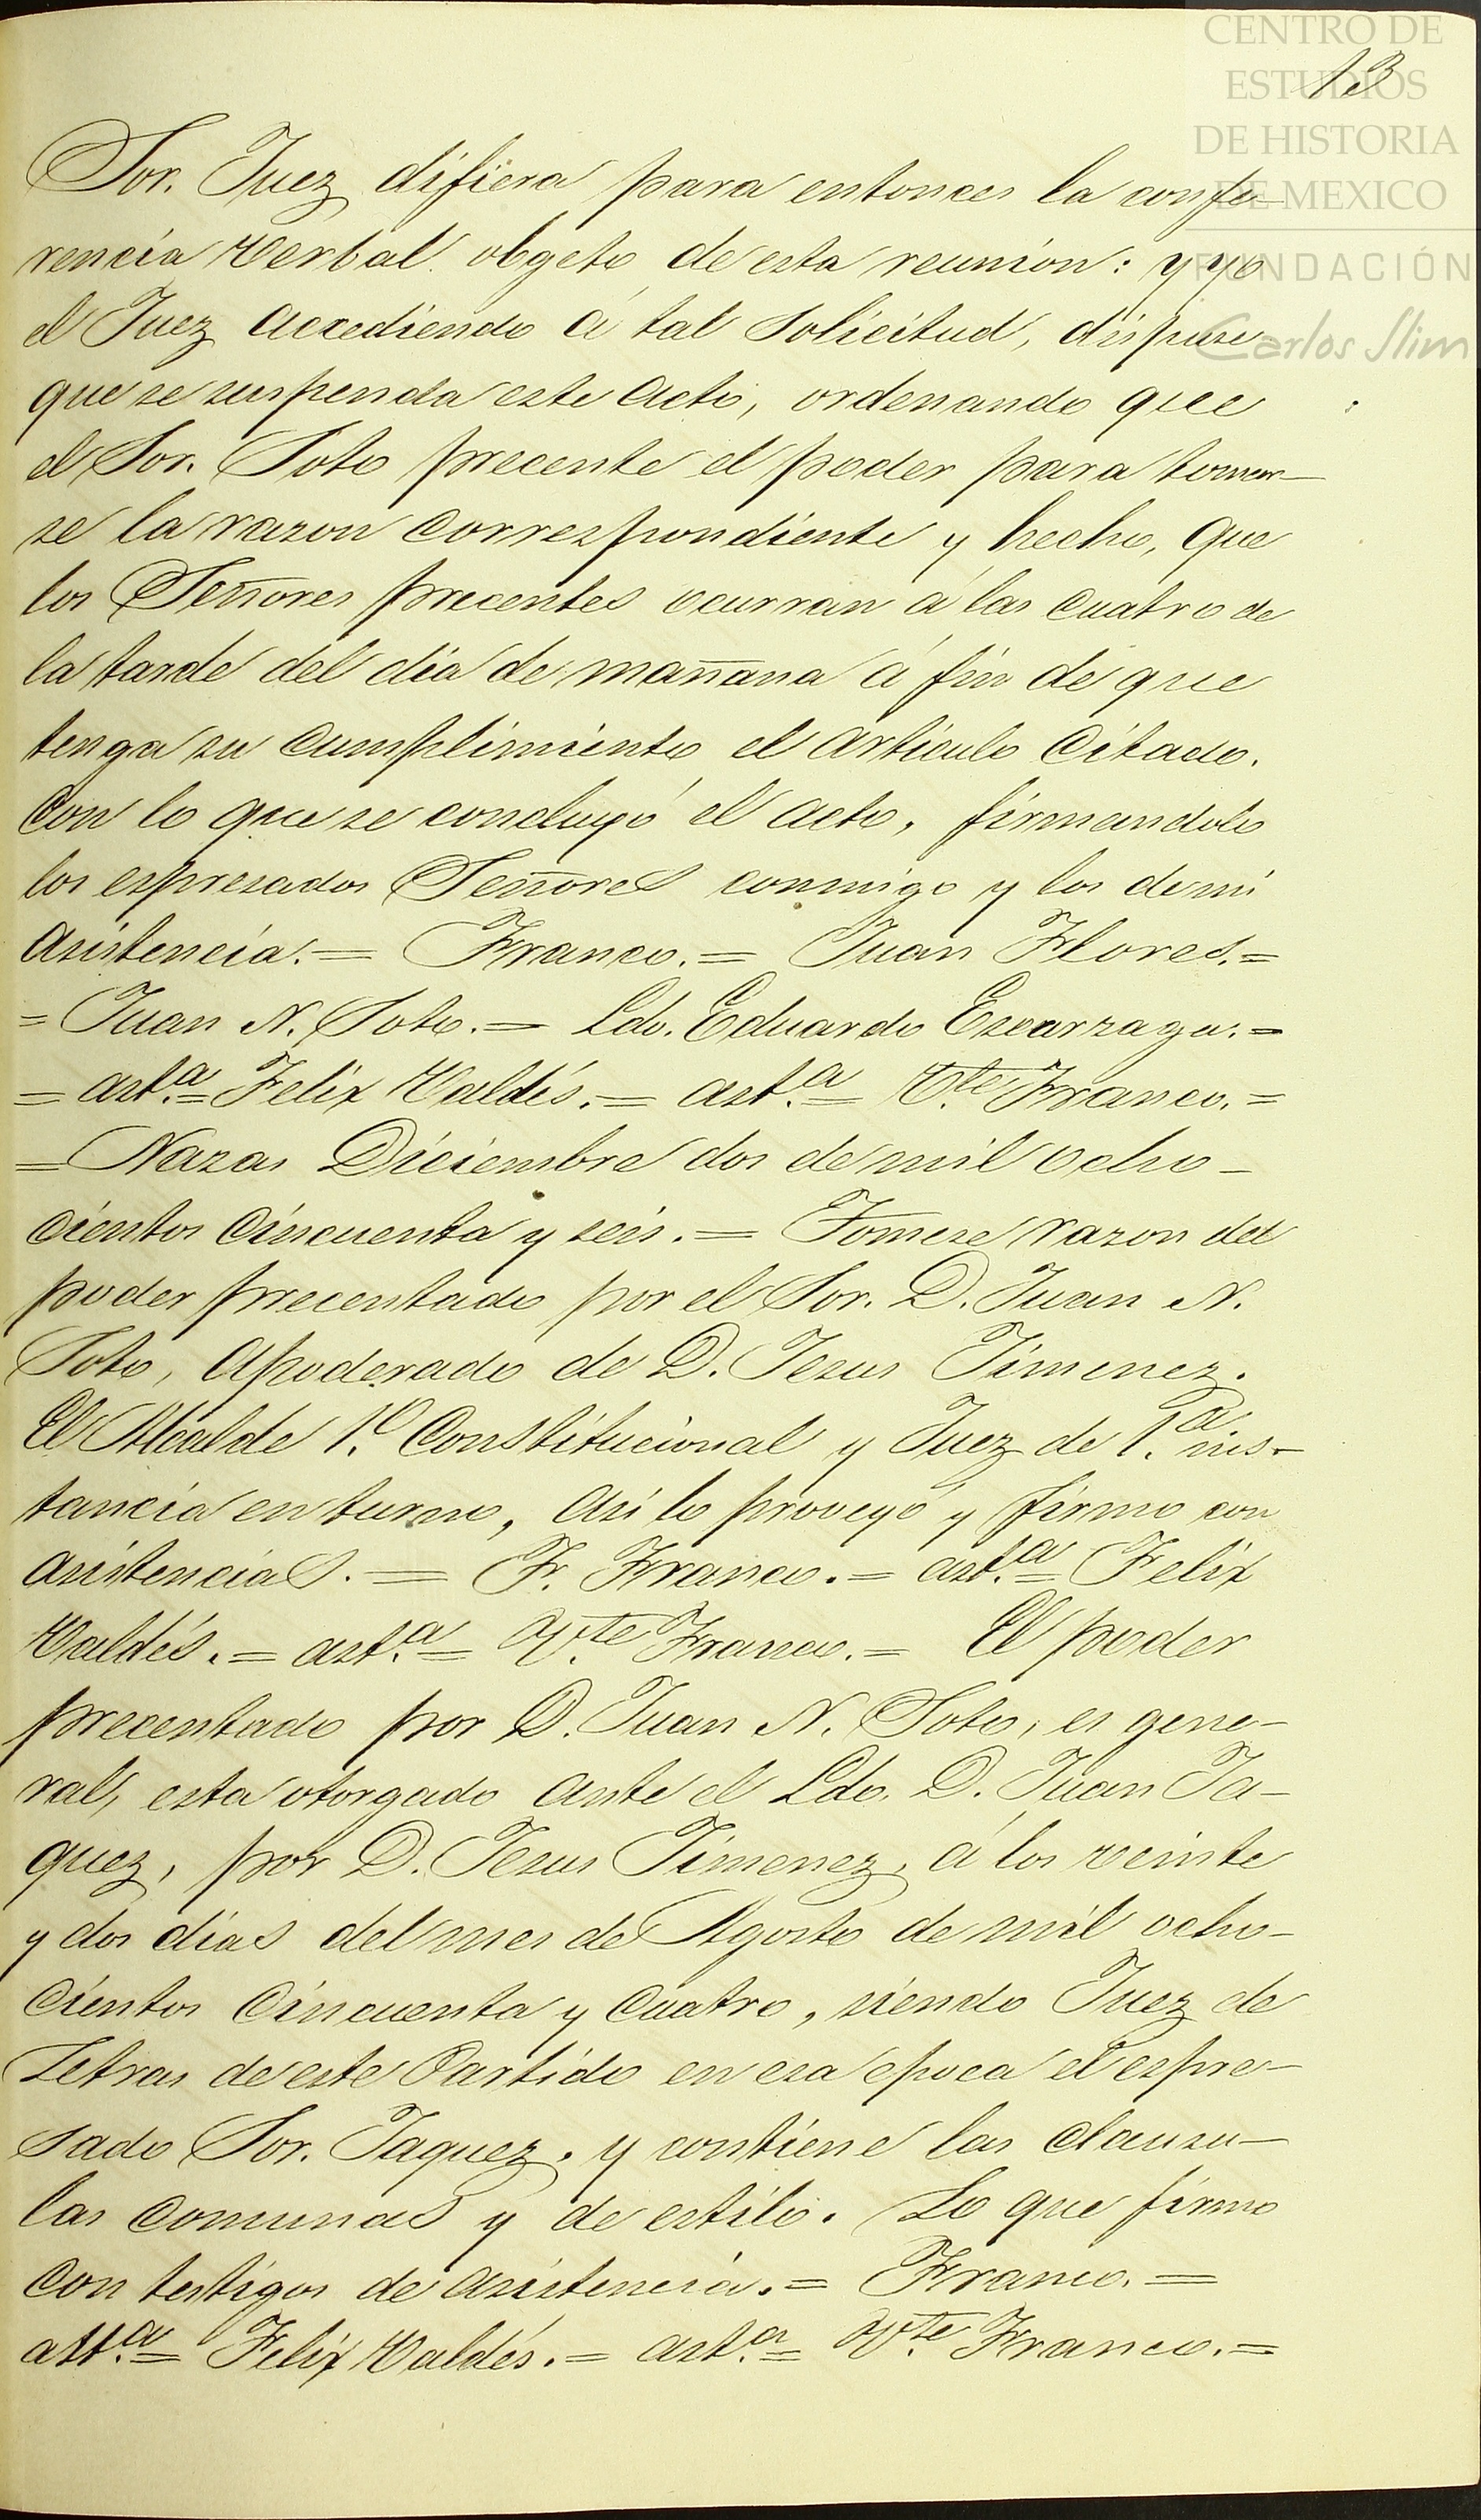 CENTRO DE
ESTUDIOS
DE HISTORIA
DE MEXICO
FUNDACIÓN
Carlos Slim
13
Sor. Juez difiera para entonces la confe-
rencia verbal obgeto de esta reunion: y yo
el Juez accediendo á tal solicitud, dispuse
que se suspenda este acto, ordenando que
el Sor. Soto precente el poder para tomar-
se la razon correspondiente y hecho, que
los Señores precentes ocurran á las cuatro de
la tarde del dia de mañana á fin de que
tenga su cumplimiento el articulo citado.
Con lo que se concluyó el acto, firmandolo
los espresados Señores conmigo y los de mi
asistencia. = Franco. = Juan Flores. =
= Juan N. Soto. = Ldo. Eduardo Escarzaga. =
= asta. = Felix Valdés. = asta. = Vte. Franco. =
= Nazas Diciembre dos de mil ocho-
cientos cincuenta y seis. = Tomese razon del
poder precentado por el Sor. D. Juan N.
Soto, apoderado de D. Jesus Jimenez.
El Alcalde 1º. Constitucional y Juez de 1ª. ins-
tancia en turno, asi lo proveyó y firmo con
asistencias. = F. Franco. = asta. = Felix
Valdés. = asta. = Vte. Franco. = El poder
precentado por D. Juan N. Soto, es gene-
ral, esta otorgado ante el Ldo. D. Juan Ja-
quez, por D. Jesus Jimenez, á los veinte
y dos dias del mes de Agosto de mil ocho-
cientos cincuenta y cuatro, siendo Juez de
Letras de este Partido en esa epoca el espre-
sado Sor. Jaquez, y contiene las clausu-
las comunes y de estilo. Lo que firmo
con testigos de asistencia. = Franco. =
asta. = Felix Valdés. = asta. = Vte. Franco. =